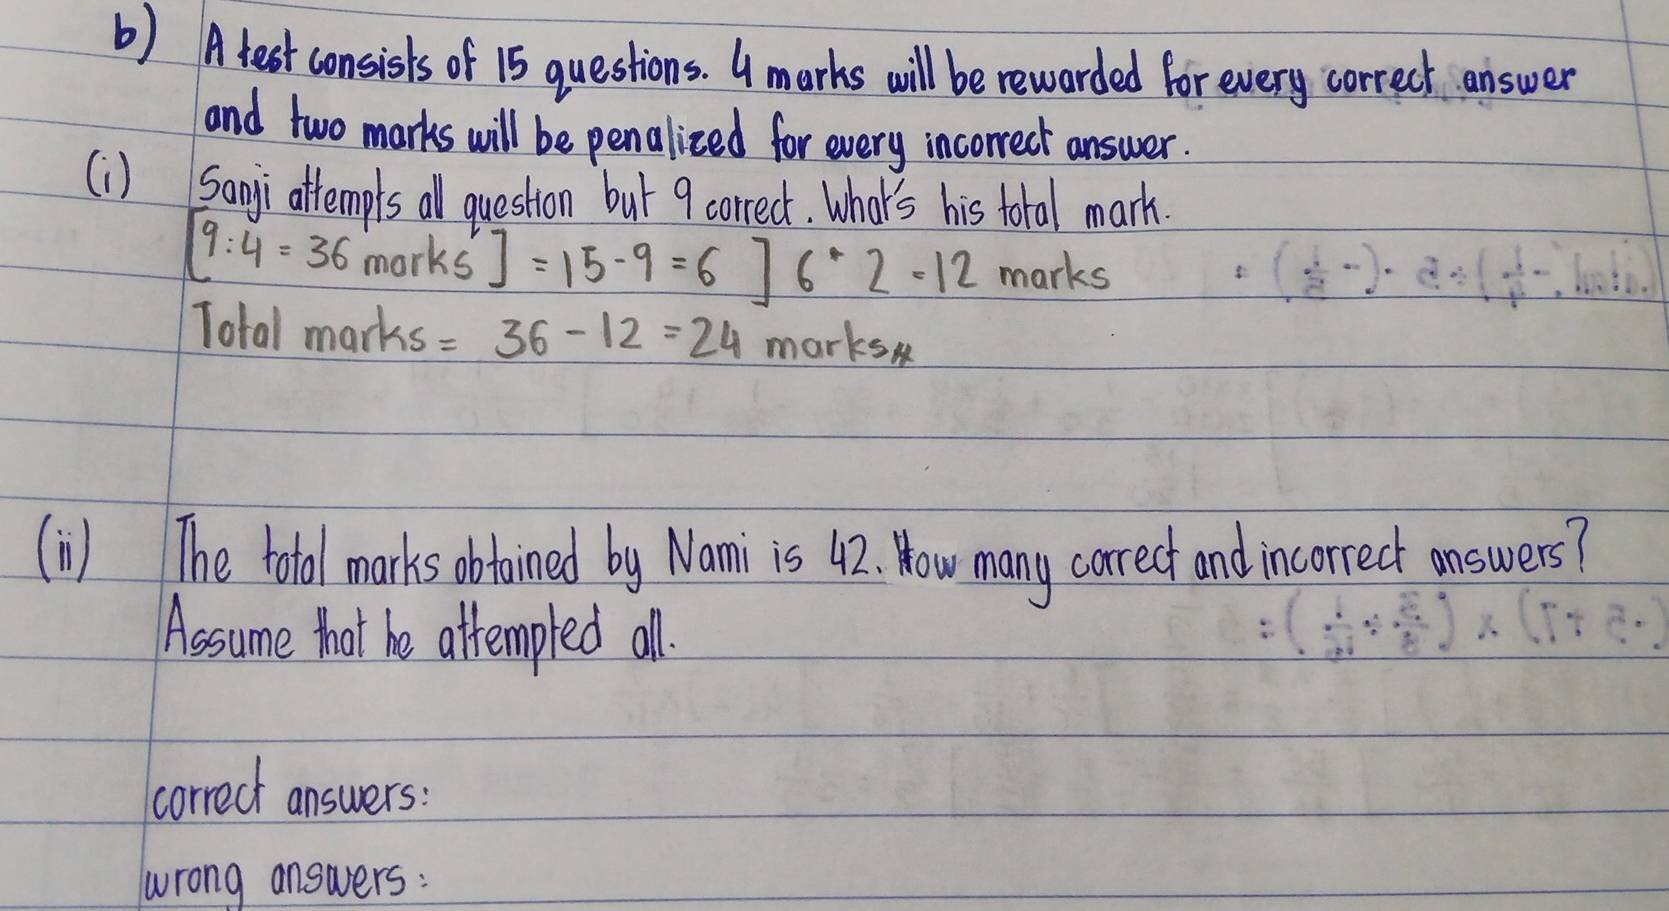 b) A test consists of 15 questions. 4 marks will be rewarded for every correct answer
and two marks will be penalized for every incorrect answer.
(i) Sanji attempts all question but 9 correct. What's his total mark.
[9:4 = 36 marks] = 15-9 = 6 ] 6 * 2 = 12 marks
Total marks = 36 - 12 = 24 marks
(ii) The total marks obtained by Nami is 42. How many correct and incorrect answers?
Assume that he attempted all.
correct answers:
wrong answers: